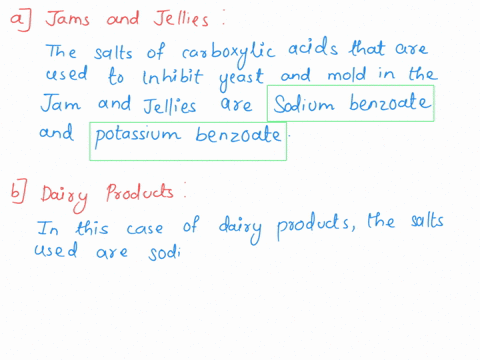 a] Jams and Jellies :
The salts of carboxylic acids that are
used to Inhibit yeast and mold in the
Jam and Jellies are Sodium benzoate
and potassium benzoate.
b] Dairy Products :
In this case of dairy products, the salts
used are sodi